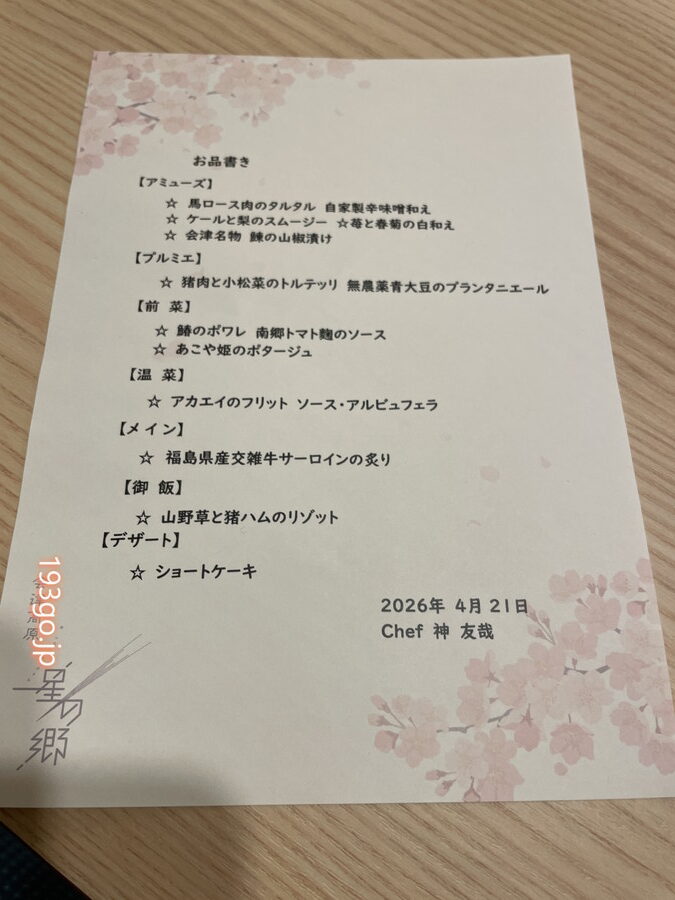 お品書き
【アミューズ】
☆ 馬ロース肉のタルタル 自家製辛味噌和え
☆ ケールと梨のスムージー ☆苺と春菊の白和え
☆ 会津名物 鰊の山椒漬け
【プルミエ】
☆ 猪肉と小松菜のトルテッリ 無農薬青大豆のプランタニエール
【前 菜】
☆ 鰆のポワレ 南郷トマト麹のソース
☆ あこや姫のポタージュ
【温 菜】
☆ アカエイのフリット ソース・アルビュフェラ
【メイン】
☆ 福島県産交雑牛サーロインの炙り
【御 飯】
☆ 山野草と猪ハムのリゾット
【デザート】
☆ ショートケーキ
2026年 4月21日
Chef 神 友哉
会津高原
星の郷
193go.jp